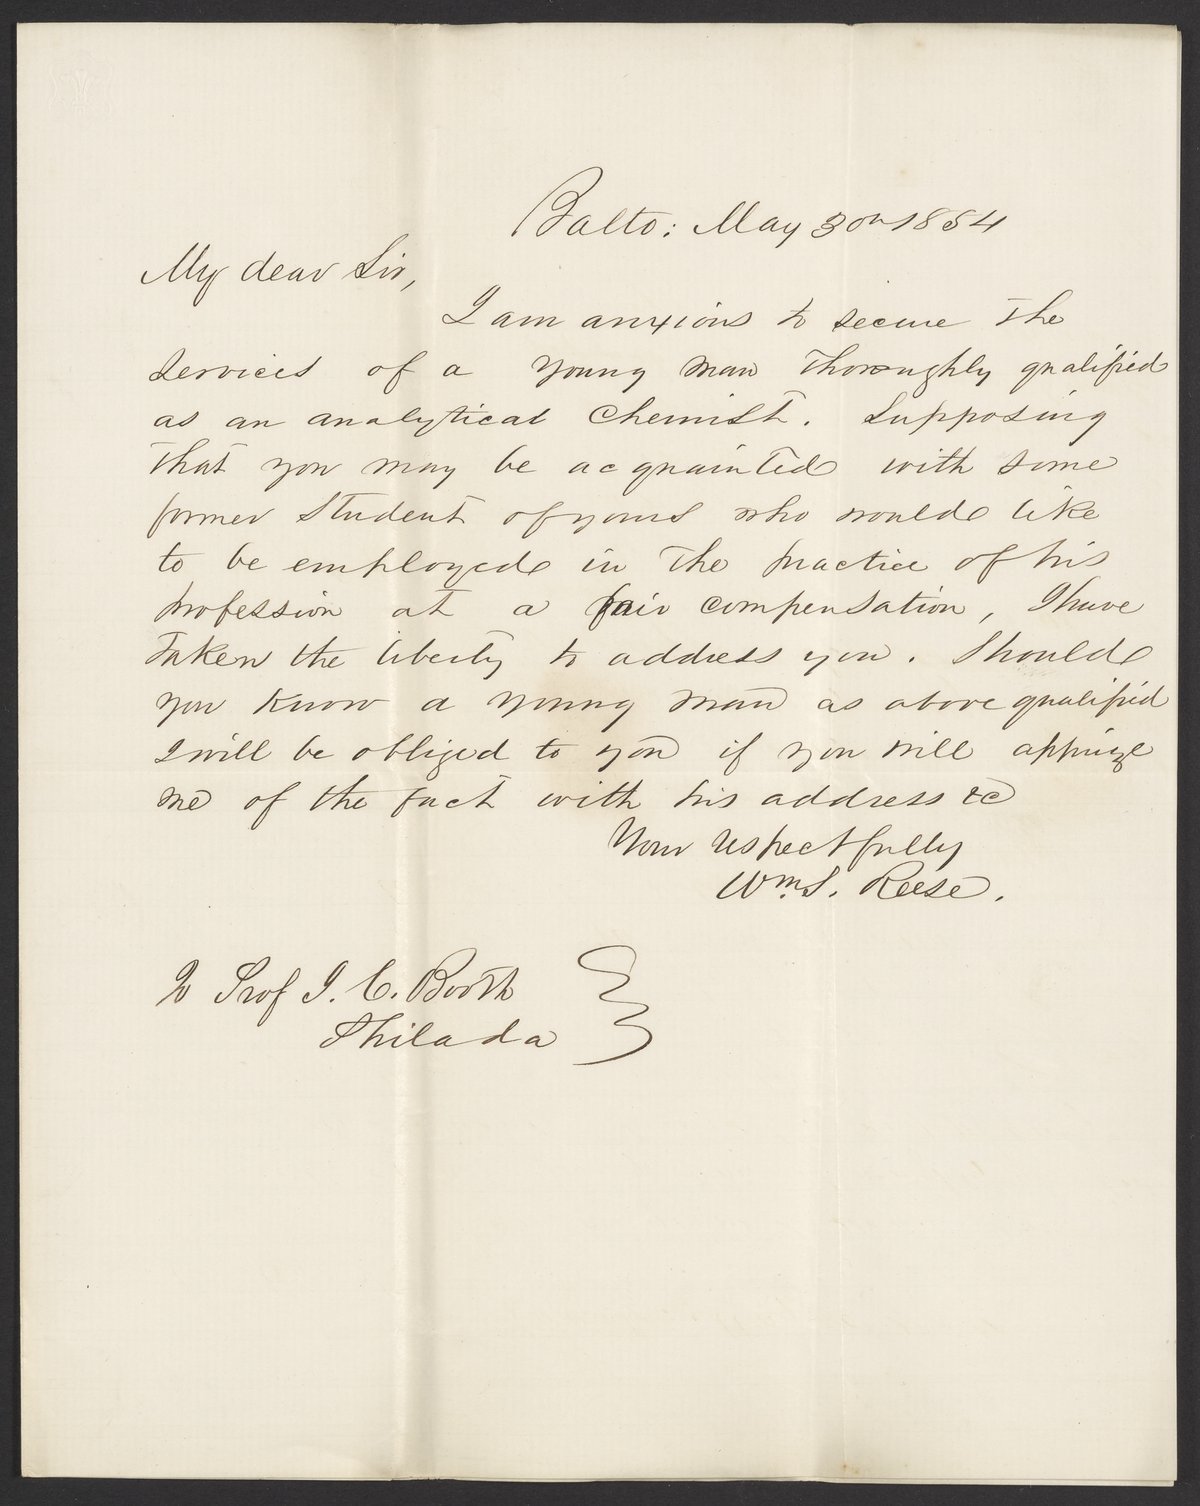 Balto: May 30th 1854
My dear Sir,
I am anxious to secure the
services of a young man thoroughly qualified
as an analytical Chemist. Supposing
that you may be acquainted with some
former Student of yours who would like
to be employed in the practice of his
profession at a fair compensation, I have
taken the liberty to address you. Should
you know a young man as above qualified
I will be obliged to you if you will apprize
me of the fact with his address &c
Your respectfully
Wm. S. Reese.
To Prof J. C. Booth
Philada